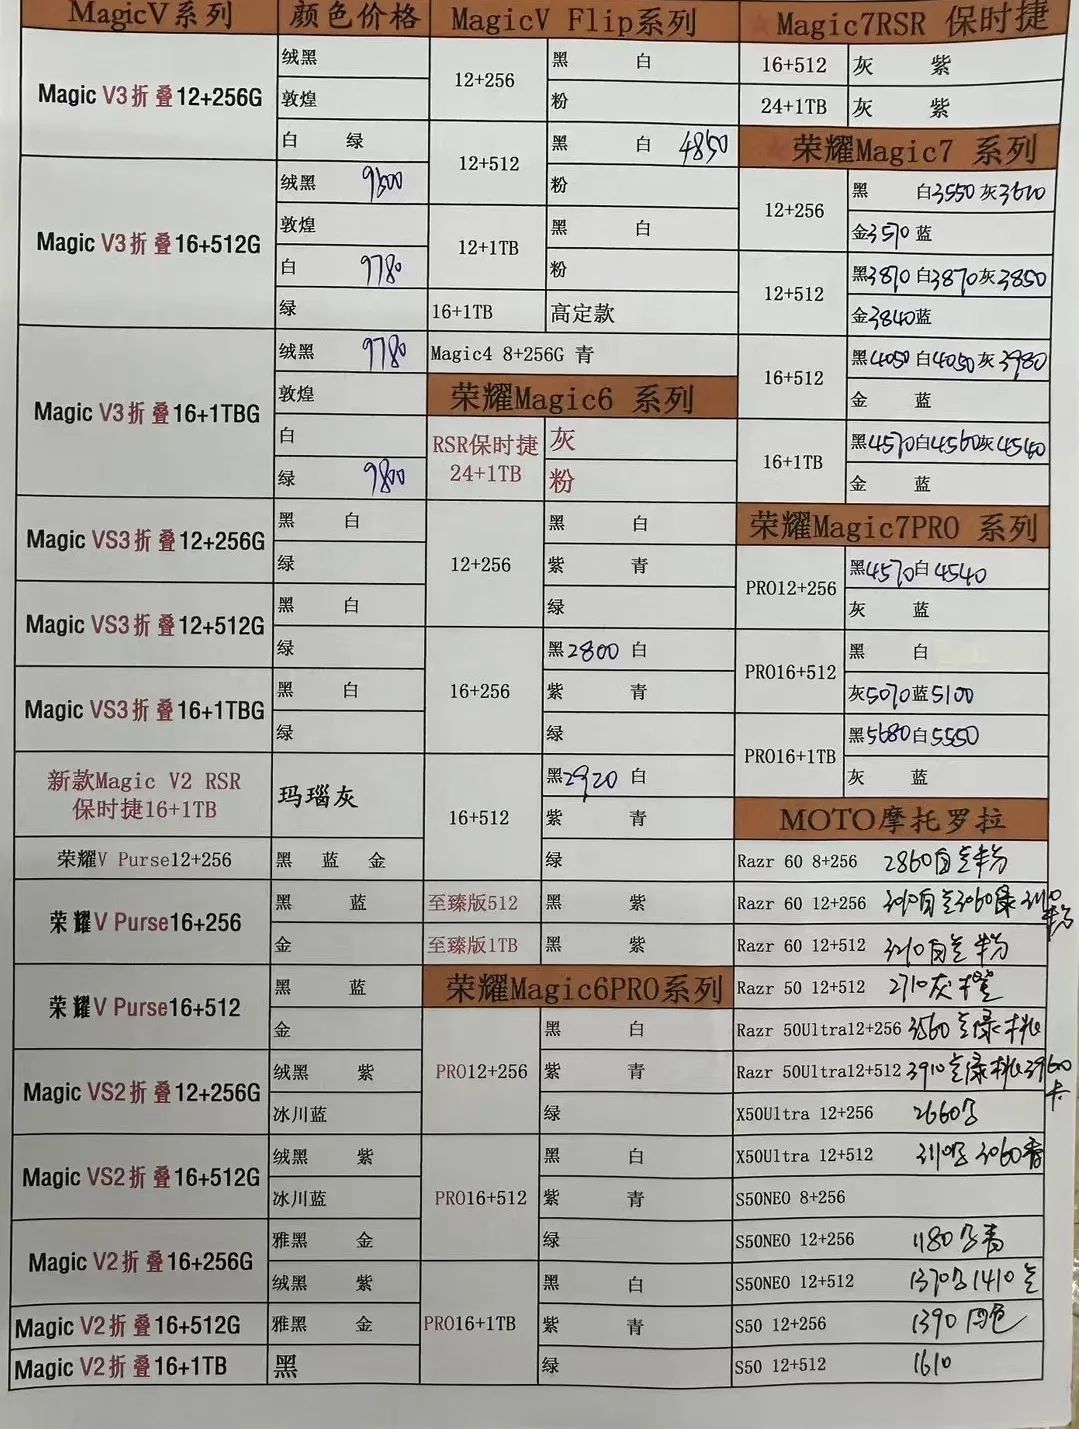 MagicV系列 颜色价格
Magic V3折叠12+256G
绒黑
敦煌
白 绿
Magic V3折叠16+512G
绒黑 9300
敦煌
白 9780
绿
Magic V3折叠16+1TBG
绒黑 9780
敦煌
白
绿 9800
Magic VS3折叠12+256G
黑 白
绿
Magic VS3折叠12+512G
黑 白
绿
Magic VS3折叠16+1TBG
黑 白
绿
新款Magic V2 RSR
保时捷16+1TB
玛瑙灰
荣耀V Purse12+256 黑 蓝 金
荣耀V Purse16+256
黑 蓝
金
荣耀V Purse16+512
黑 蓝
金
Magic VS2折叠12+256G
绒黑 紫
冰川蓝
Magic VS2折叠16+512G
绒黑 紫
冰川蓝
Magic V2折叠16+256G
雅黑 金
绒黑 紫
Magic V2折叠16+512G 雅黑 金
Magic V2折叠16+1TB 黑
MagicV Flip系列
12+256
黑 白
粉
12+512
黑 白 4850
粉
12+1TB
黑 白
粉
16+1TB 高定款
Magic4 8+256G 青
荣耀Magic6 系列
RSR保时捷
24+1TB
灰
粉
12+256
黑 白
紫 青
绿
16+256
黑2800 白
紫 青
绿
16+512
黑2920 白
紫 青
绿
至臻版512 黑 紫
至臻版1TB 黑 紫
荣耀Magic6PRO系列
PRO12+256
黑 白
紫 青
绿
PRO16+512
黑 白
紫 青
绿
PRO16+1TB
黑 白
紫 青
绿
Magic7RSR 保时捷
16+512 灰 紫
24+1TB 灰 紫
荣耀Magic7 系列
12+256
黑 白3550 灰3600
金3570 蓝
12+512
黑3870 白3870 灰3850
金3840 蓝
16+512
黑4050 白4050 灰3980
金 蓝
16+1TB
黑4570 白4560 灰4540
金 蓝
荣耀Magic7PRO 系列
PRO12+256
黑4570 白4540
灰 蓝
PRO16+512
黑 白
灰5070 蓝5100
PRO16+1TB
黑5680 白5550
灰 蓝
MOTO摩托罗拉
Razr 60 8+256 2860白 粉
Razr 60 12+256 3060绿
Razr 60 12+512 3210白 粉
Razr 50 12+512 2710灰 橙
Razr 50Ultra12+256 3560 绿 桃
Razr 50Ultra12+512 3910 绿 桃 3960
X50Ultra 12+256 2660
X50Ultra 12+512 3110 3060青
S50NEO 8+256
S50NEO 12+256 1180 青
S50NEO 12+512 1370 1410
S50 12+256 1390 四色
S50 12+512 1610